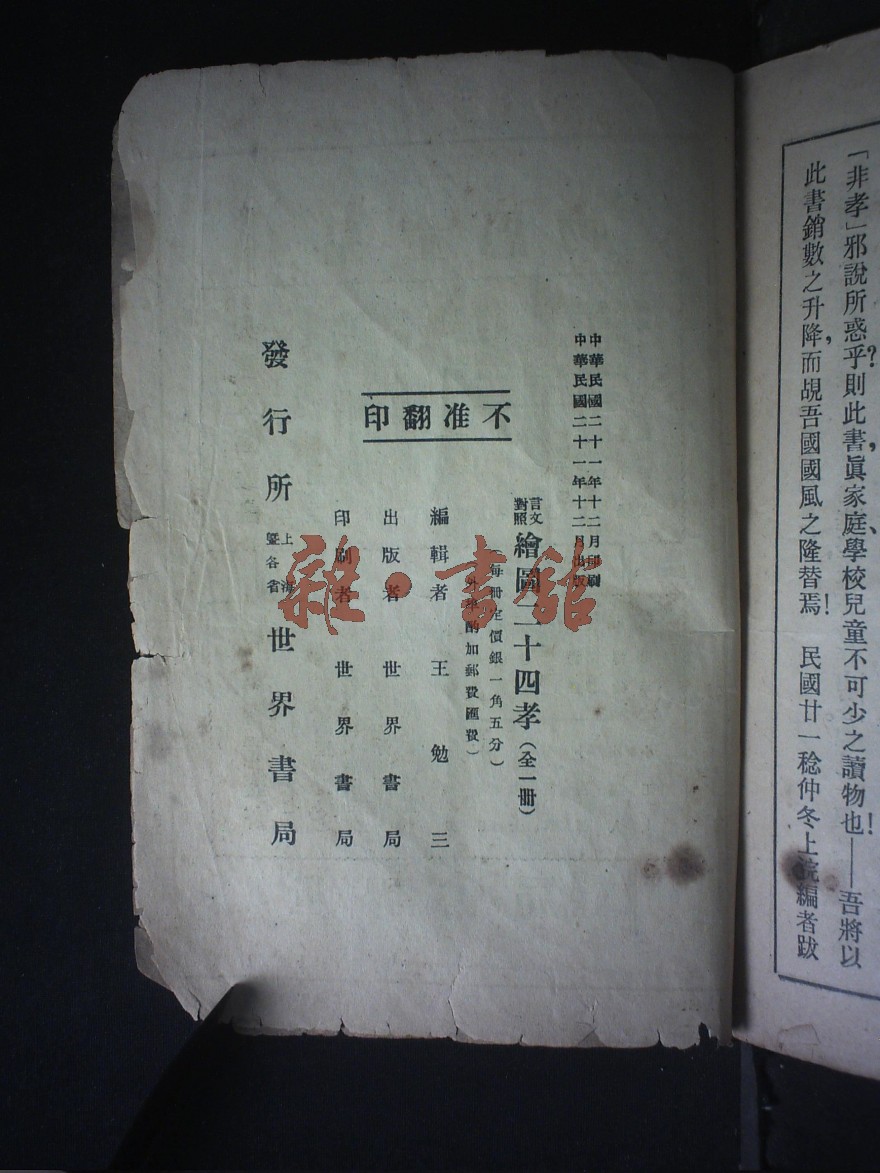 「非孝」邪說所惑乎?則此書,眞家庭、學校兒童不可少之讀物也!——吾將以
此書銷數之升降,而覘吾國國風之隆替焉! 民國廿一稔仲冬上浣編者跋
中華民國二十一年十二月印刷
中華民國二十一年十二月出版
言文對照 繪圖二十四孝(全一冊)
(每冊定價銀一角五分)
外埠酌加郵費匯費)
不准翻印
編輯者 王勉三
出版者 世界書局
印刷者 世界書局
發行所 上海暨各省 世界書局
雜·書館